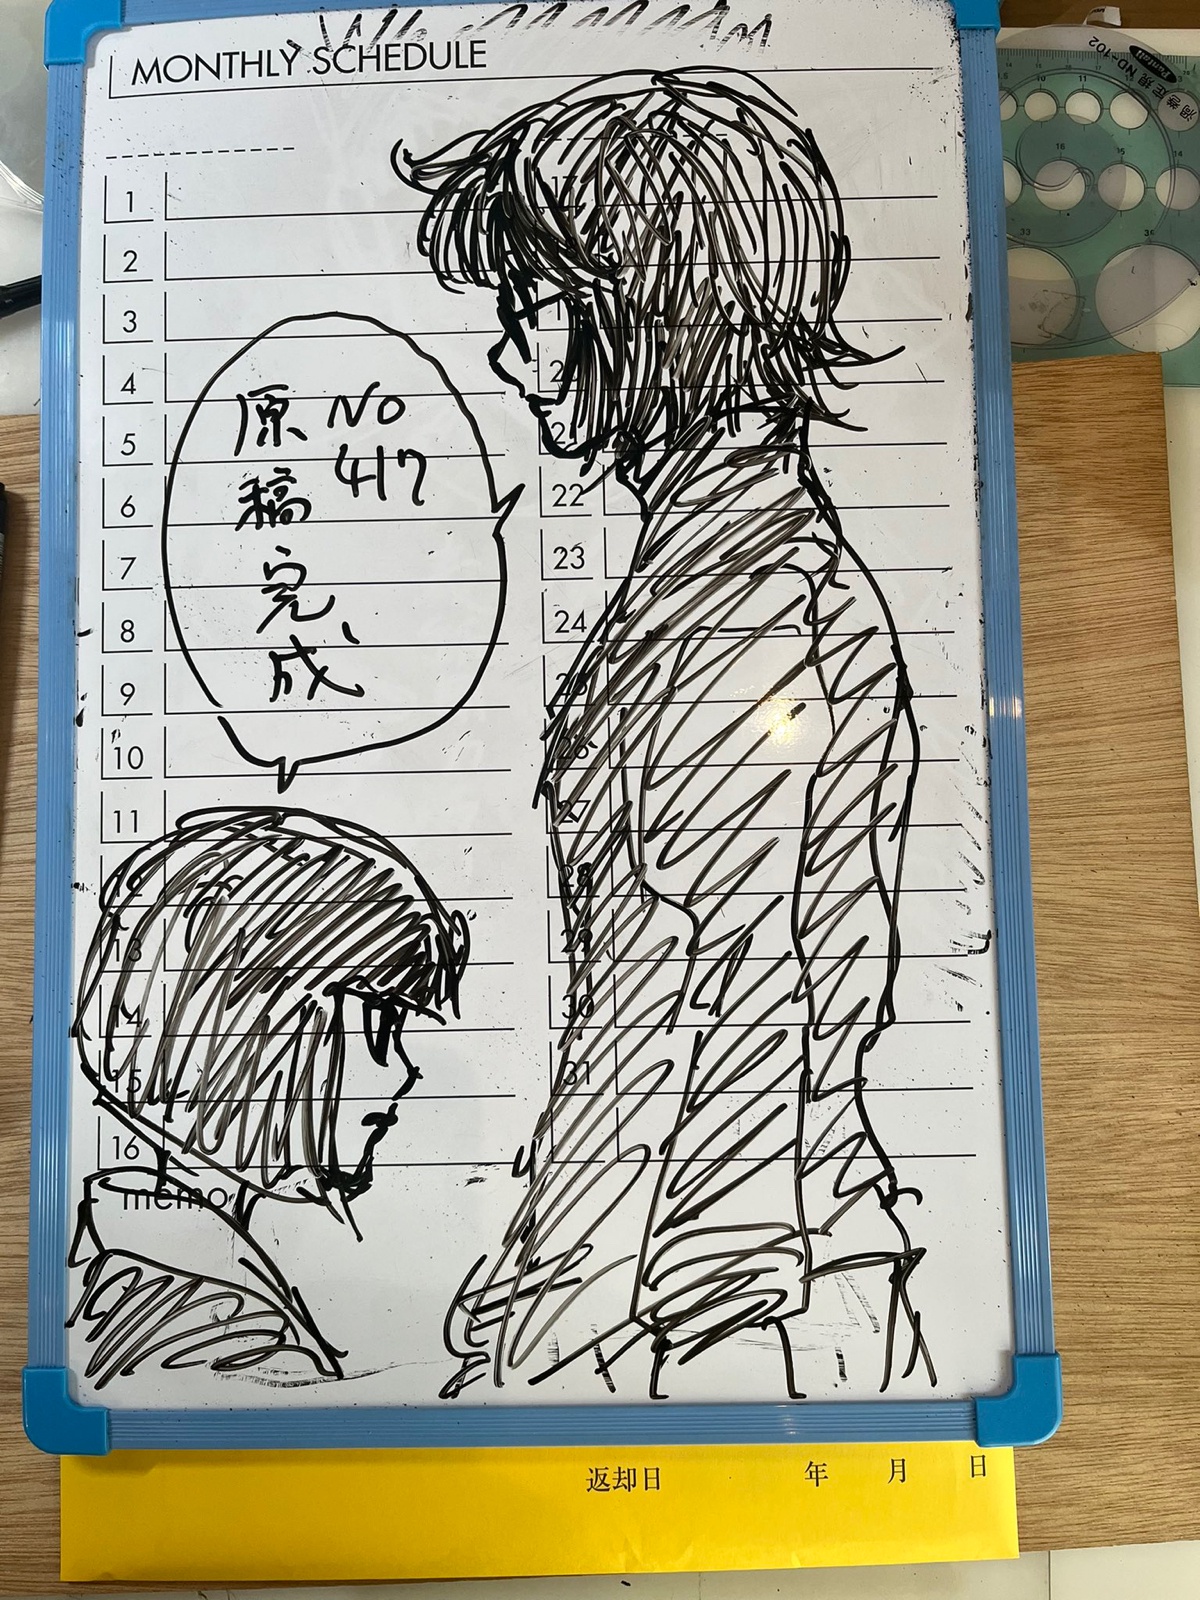 MONTHLY SCHEDULE
1
2
3
4
5
6
7
8
9
10
11
12
13
14
15
16
17
22
23
24
25
26
27
28
29
30
31
memo
No
417
原稿完成
返却日 年 月 日
Pentel
渦巻定規 ND-102